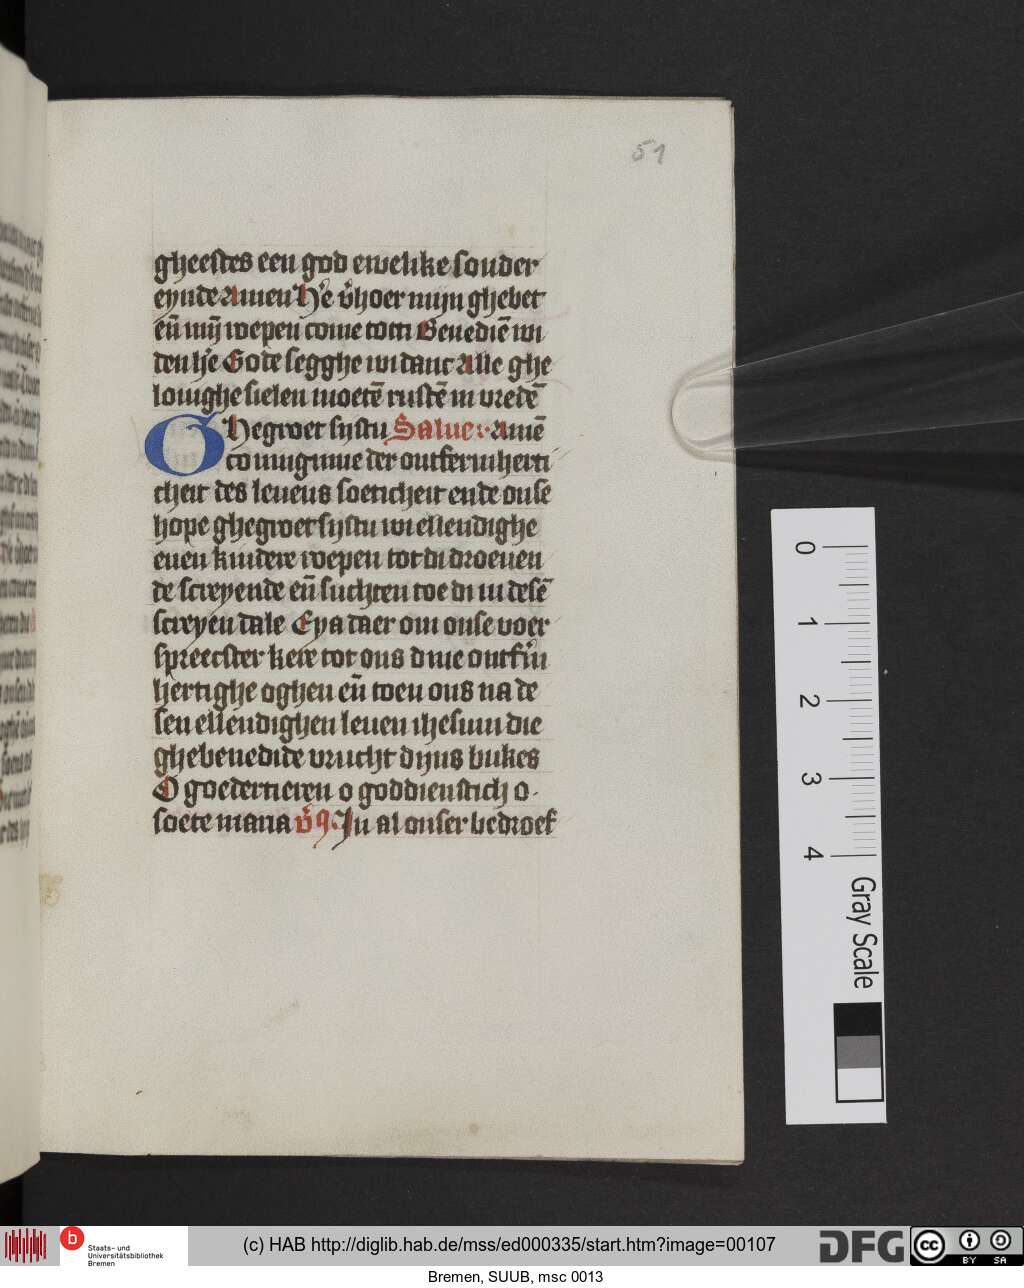 51
gheestes een god ewelike sonder
eynde Amen H'e v̄hoer mijn ghebet
eñ mij̄ roepen come totti Benediē wi
den h'e Gode segghe wi danc Alle ghe
louighe sielen moetē rustē in vredē
GHegroet sijstu Salue: Amē
coninginne der ontfermherti
cheit des leuens soeticheit ende onse
hope ghegroet sijstu wi ellendighe
euen kindere roepen tot di droeuen
de screyende eñ suchten toe di in desē
screyen dale Eya daer om onse voer
spreecster kere tot ons dine ontf'm
hertighe oghen eñ toen ons na de
sen ellendighen leuen ihesum die
ghebenedide vrucht dijns bukes
O goedertieren o goddienstich o
soete maria v̄s In al onser bedroef
0
1
2
3
4
Gray Scale
b
Staats- und
Universitätsbibliothek
Bremen
(c) HAB http://diglib.hab.de/mss/ed000335/start.htm?image=00107
DFG
cc
BY SA
Bremen, SUUB, msc 0013